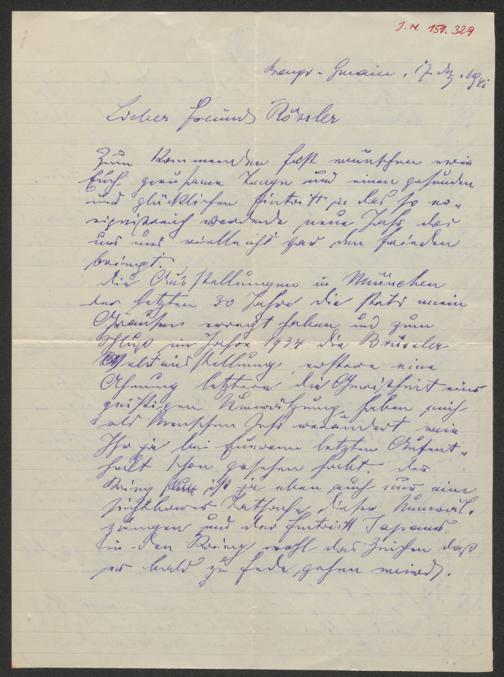 J.N. 158.329
Grossgmain, 17. Dez. 1941
Lieber Freund Rössler
Zum kommenden Fest wünschen wir
Euch geruhsame Tage und einen gesunden
und glücklichen Eintritt in das so er-
eignisreich werdende neue Jahr, das
uns und vielleicht gar den Frieden
bringt.
Die Ausstellungen in München
der letzten 30 Jahre die stets mein
Grausen erregt haben und zum
Schluß im Jahre 1937 die Brüsseler
Weltausstellung, erstere eine
Ahnung letztere die Gewissheit einer
geistigen Umwälzung, haben mich
als Menschen sehr verändert wie
Ihr ja bei Eurem letzten Aufent-
halt schon gesehen habt. Der
Krieg ist ja eben auch nur eine
sichtbare Tatsache dieser Umwäl-
zungen und der Eintritt Japans
in den Krieg wohl das Zeichen daß
es bald zu Ende gehen wird.